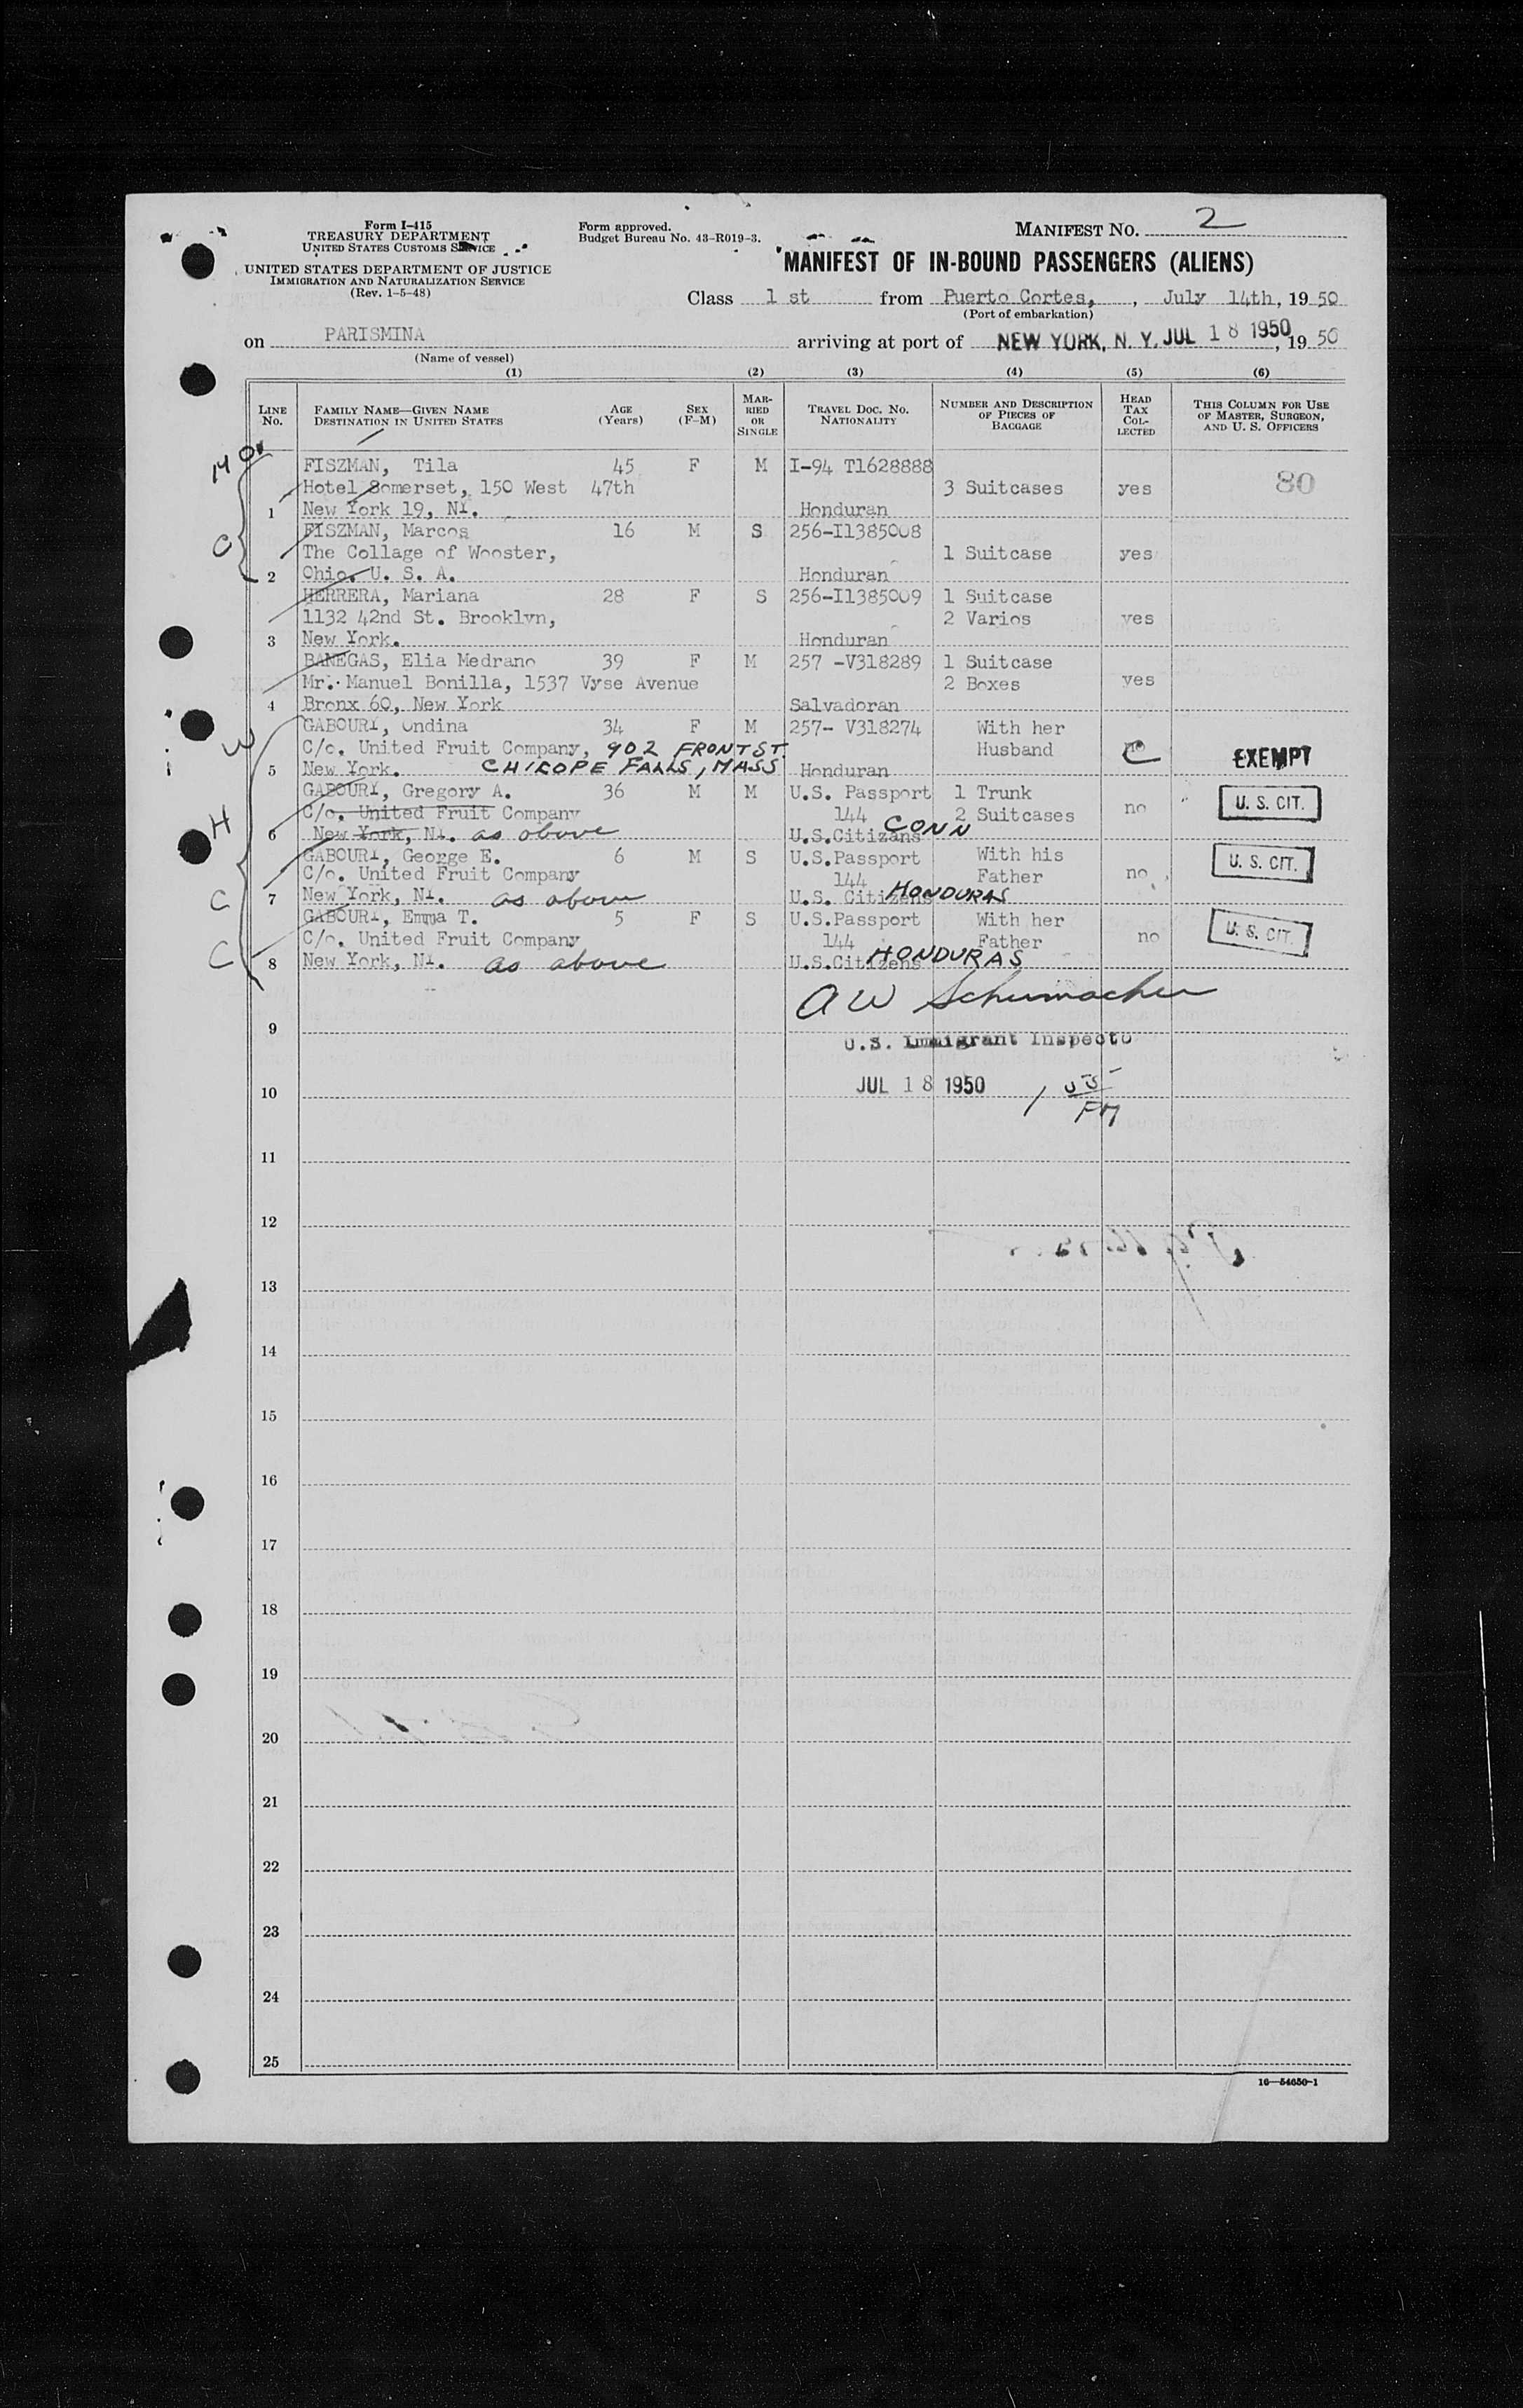 Form I-415
TREASURY DEPARTMENT
UNITED STATES CUSTOMS SERVICE
UNITED STATES DEPARTMENT OF JUSTICE
IMMIGRATION AND NATURALIZATION SERVICE
(Rev. 1-5-48)
Form approved.
Budget Bureau No. 43-R019-3.
MANIFEST NO. 2
MANIFEST OF IN-BOUND PASSENGERS (ALIENS)
Class 1 st from Puerto Cortes, , July 14th, 19 50
(Port of embarkation)
on PARISMINA arriving at port of NEW YORK, N. Y. JUL 18 1950, 19 50
(Name of vessel)
(1) (2) (3) (4) (5) (6)
LINE NO. FAMILY NAME—GIVEN NAME DESTINATION IN UNITED STATES AGE (Years) SEX (F-M) MARRIED OR SINGLE TRAVEL DOC. NO. NATIONALITY NUMBER AND DESCRIPTION OF PIECES OF BAGGAGE HEAD TAX COLLECTED THIS COLUMN FOR USE OF MASTER, SURGEON, AND U. S. OFFICERS
FISZMAN, Tila 45 F M I-94 T1628888
Hotel Somerset, 150 West 47th 3 Suitcases yes 80
1 New York 19, NY. Honduran
FISZMAN, Marcos 16 M S 256-I1385008
C The Collage of Wooster, 1 Suitcase yes
2 Ohio. U. S. A. Honduran
HERRERA, Mariana 28 F S 256-I1385009 1 Suitcase
1132 42nd St. Brooklyn, 2 Varios yes
3 New York. Honduran
BANEGAS, Elia Medrano 39 F M 257 -V318289 1 Suitcase
Mr. Manuel Bonilla, 1537 Vyse Avenue 2 Boxes yes
4 Bronx 60, New York Salvadoran
GABOURY, Ondina 34 F M 257- V318274 With her
W C/o. United Fruit Company, 902 FRONT ST. Husband C EXEMPT
5 New York. CHICOPE FALLS, MASS Honduran
GABOURY, Gregory A. 36 M M U.S. Passport 1 Trunk
H C/o. United Fruit Company 144 2 Suitcases no U. S. CIT.
6 New York, NY. as above U.S.Citizens CONN
GABOURY, George E. 6 M S U.S.Passport With his
C/o. United Fruit Company 144 Father no U. S. CIT.
C 7 New York, NY. as above U.S. Citizens HONDURAS
GABOURY, Emma T. 5 F S U.S.Passport With her
C/o. United Fruit Company 144 Father no U. S. CIT.
C 8 New York, NY. as above U.S.Citizens HONDURAS
A W Schumacher
9
U.S. Immigrant Inspecto
10 JUL 18 1950 1 55 PM
11
12
13
14
15
16
17
18
19
20
21
22
23
24
25
16—54650-1